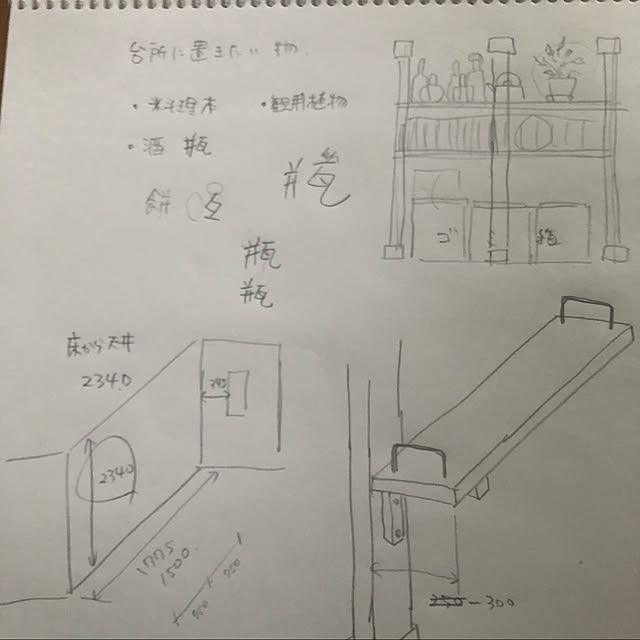 台所に置きたい物
・料理本 ・観用植物
・酒瓶
瓶
瓶
ゴ
箱
床から天井
2340
2340
1775
1500
300